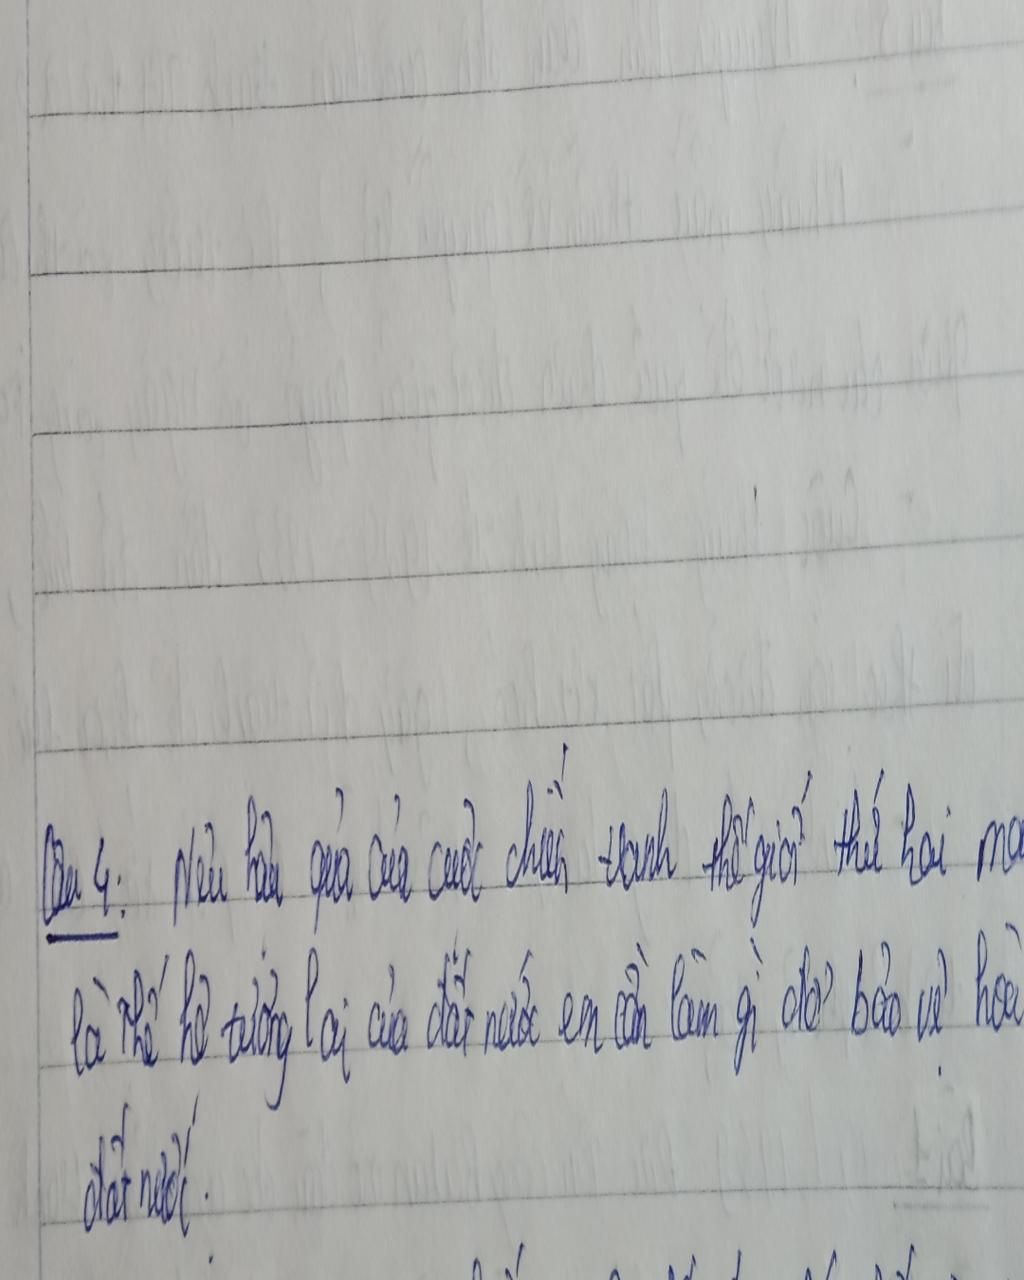 Câu 4: Nêu hậu quả của cuộc chiến tranh thế giới thứ hai
là thế hệ tương lai của đất nước em cần làm gì để bảo vệ
đất nước.